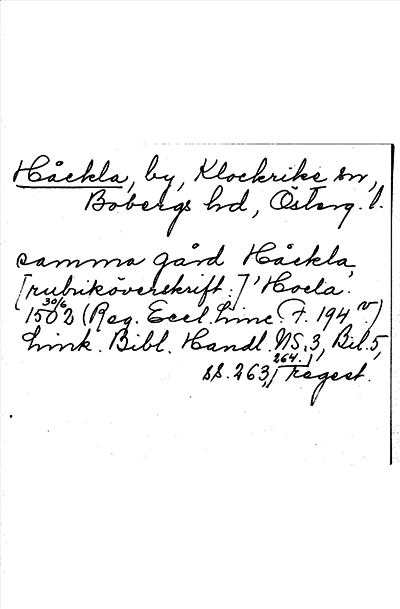 Håckla, by, Klockrike sn,
Bobergs hd, Österg. l.
samma gård Håckla,
[rubriköverskrift:] 'Hocla'.
30/6
1502 (Reg. Eccl. Linc. F. 194 v)
Link. Bibl. Handl. NS. 3, Bil. 5,
ss. 263, 264. Tregest.